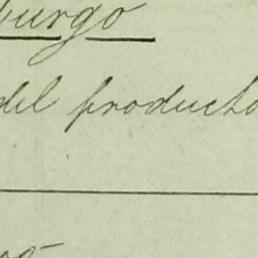 burgo
del producto